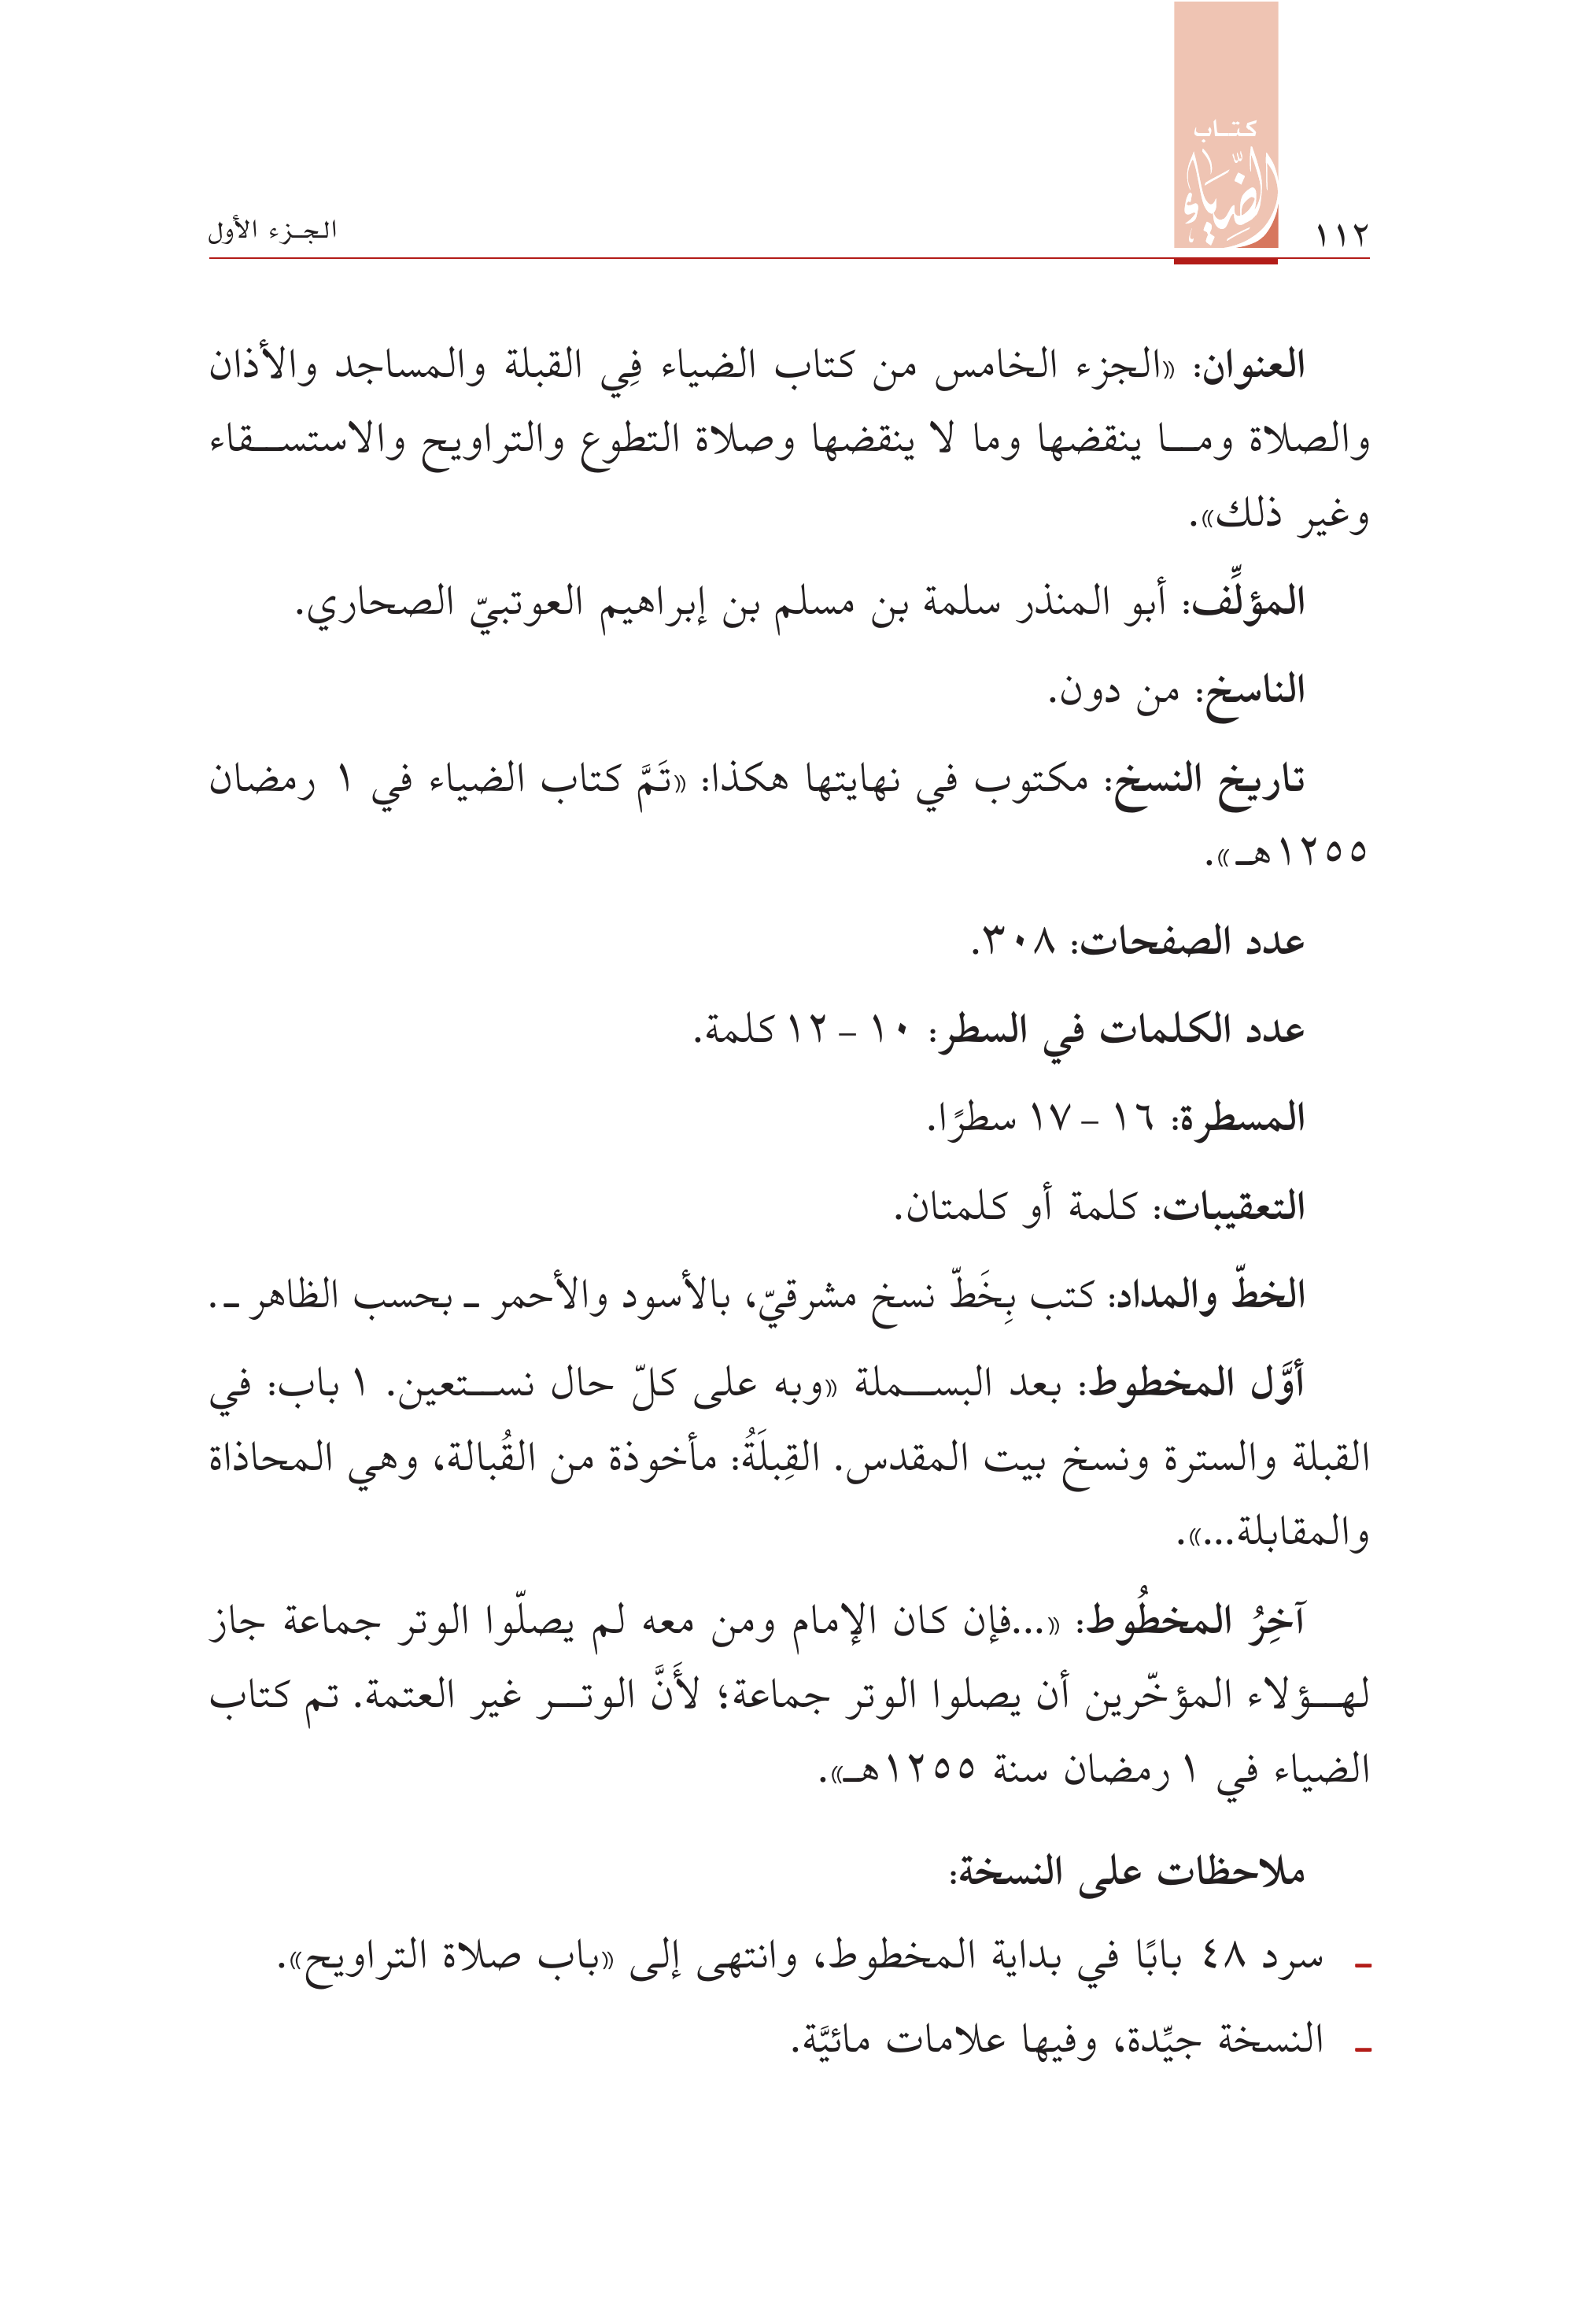 ١١٢
كتاب
الضِّيَاء
الجزء الأول
العنوان: «الجزء الخامس من كتاب الضياء فِي القبلة والمساجد والأذان
والصلاة ومـا ينقضها وما لا ينقضها وصلاة التطوع والتراويح والاستسـقاء
وغير ذلك».
المؤلِّف: أبو المنذر سلمة بن مسلم بن إبراهيم العوتبيّ الصحاري.
الناسخ: من دون.
تاريخ النسخ: مكتوب في نهايتها هكذا: «تَمَّ كتاب الضياء في ١ رمضان
١٢٥٥هـ».
عدد الصفحات: ٣٠٨.
عدد الكلمات في السطر: ١٠ - ١٢ كلمة.
المسطرة: ١٦ - ١٧ سطرًا.
التعقيبات: كلمة أو كلمتان.
الخطّ والمداد: كتب بِخَطّ نسخ مشرقيّ، بالأسود والأحمر ـ بحسب الظاهر ـ.
أوَّل المخطوط: بعد البسـملة «وبه على كلّ حال نسـتعين. ١ باب: في
القبلة والسترة ونسخ بيت المقدس. القِبلَةُ: مأخوذة من القُبالة، وهي المحاذاة
والمقابلة...».
آخِرُ المخطُوط: «...فإن كان الإمام ومن معه لم يصلّوا الوتر جماعة جاز
لهـؤلاء المؤخّرين أن يصلوا الوتر جماعة؛ لأَنَّ الوتـر غير العتمة. تم كتاب
الضياء في ١ رمضان سنة ١٢٥٥هـ».
ملاحظات على النسخة:
ـ سرد ٤٨ بابًا في بداية المخطوط، وانتهى إلى «باب صلاة التراويح».
ـ النسخة جيِّدة، وفيها علامات مائيَّة.